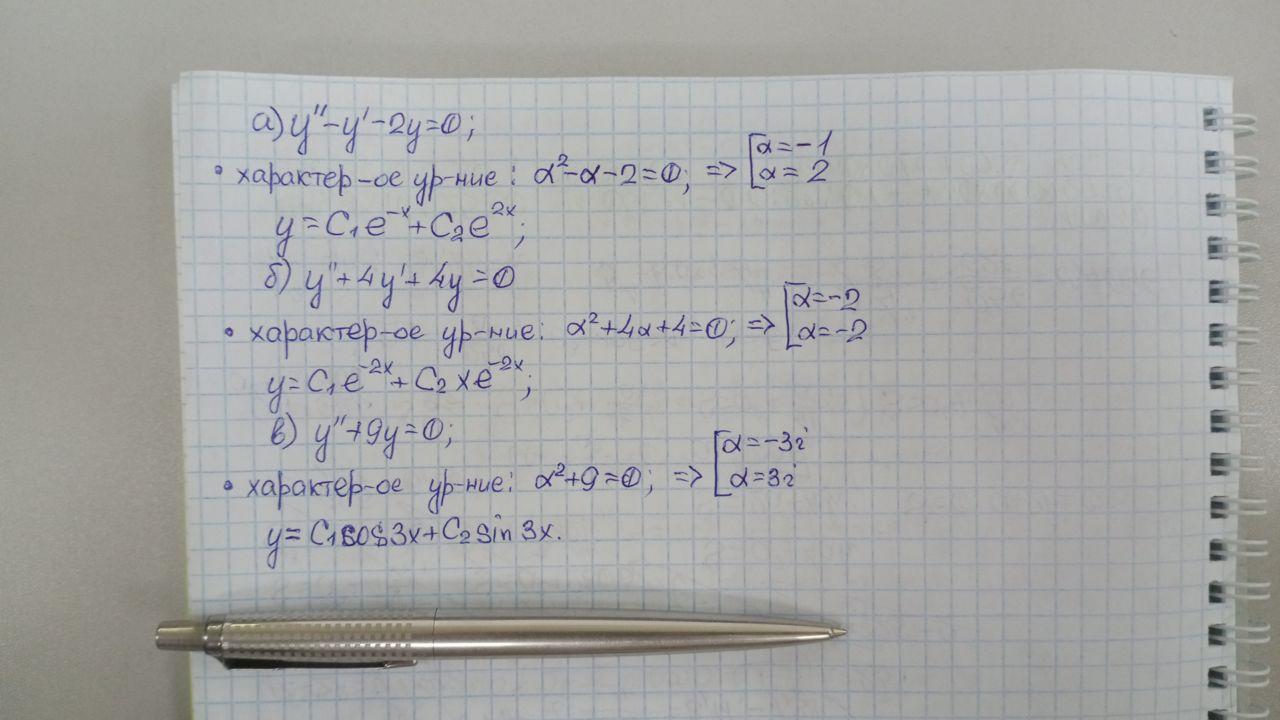 а) y''-y'-2y=0;
• характер-ое ур-ние: α²-α-2=0; => [α=-1
α=2
y=C₁e⁻ˣ+C₂e²ˣ;
б) y''+4y'+4y=0
• характер-ое ур-ние: α²+4α+4=0; => [α=-2
α=-2
y=C₁e⁻²ˣ+C₂xe⁻²ˣ;
в) y''+9y=0;
• характер-ое ур-ние: α²+9=0; => [α=-3i
α=3i
y=C₁cos3x+C₂sin3x.